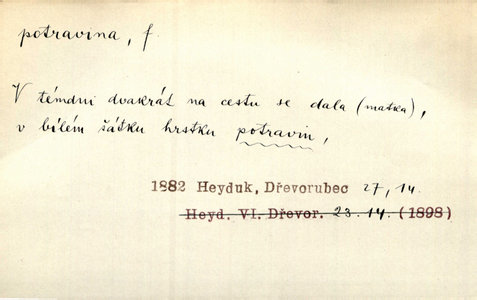 potravina, f.
V témdni dvakrát na cestu se dala (matka),
v bílém šátku hrstku potravin,
1882 Heyduk, Dřevorubec 27, 14.
Heyd. VI. Dřevor. 23.14. (1898)